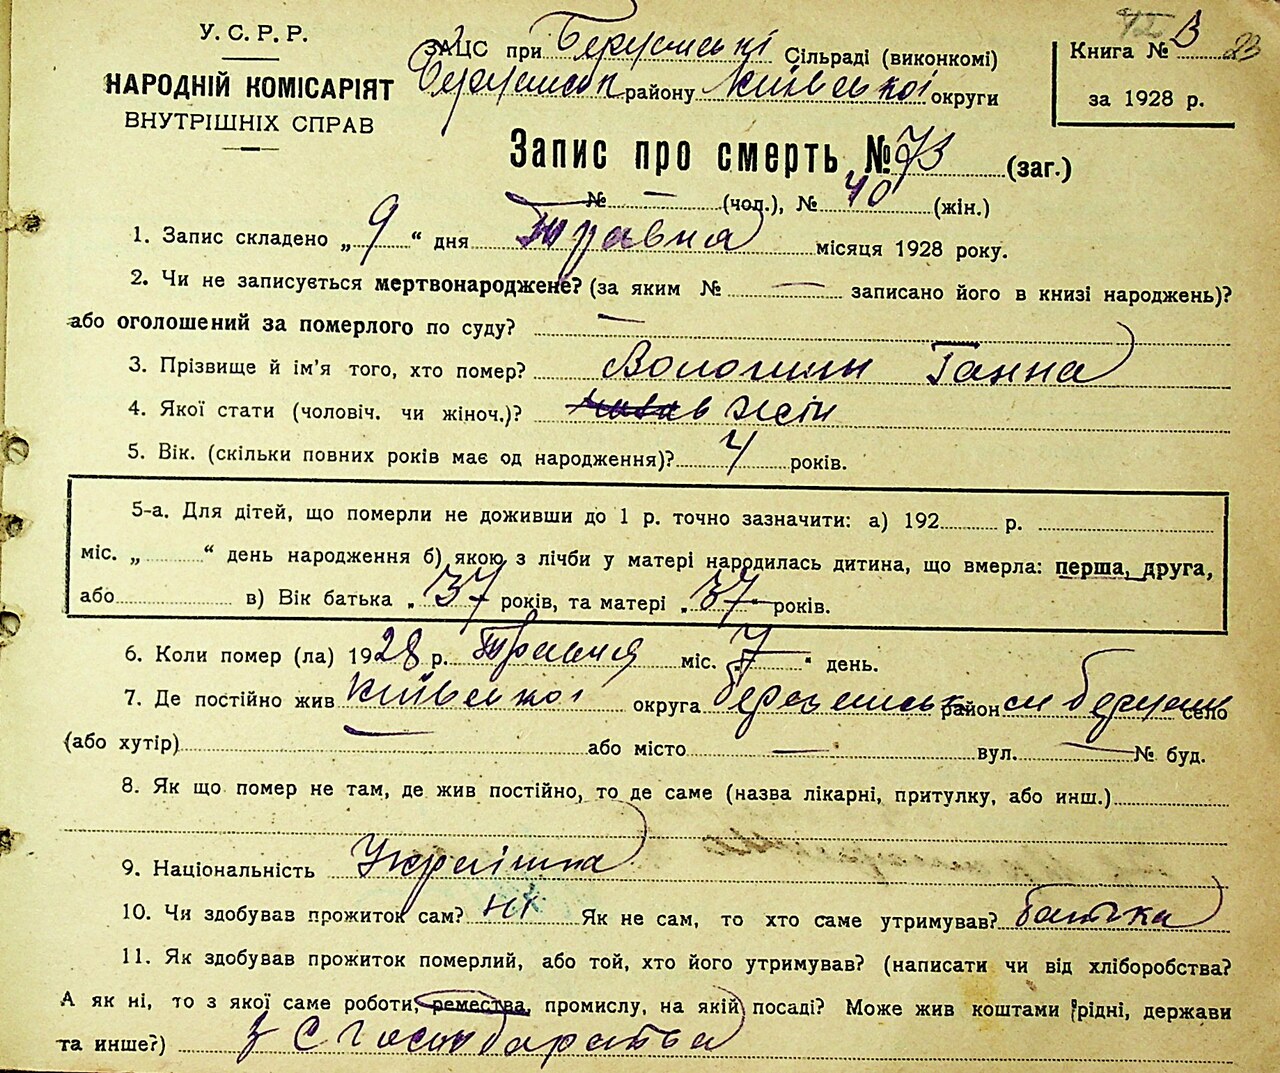 У. С. Р. Р.
НАРОДНІЙ КОМІСАРІЯТ
ВНУТРІШНІХ СПРАВ
ЗАЦС при Сільраді (виконкомі)
району Київської округи
Книга № 3 23
за 1928 р.
Запис про смерть № 73 (заг.)
№ — (чол.), № 40 (жін.)
1. Запис складено „ 9 “ дня Травня місяця 1928 року.
2. Чи не записується мертвонароджене? (за яким № — записано його в книзі народжень)?
або оголошений за померлого по суду? —
3. Прізвище й ім'я того, хто помер? Волошин Ганна
4. Якої стати (чоловіч. чи жіноч.)? жін
5. Вік. (скільки повних років має од народження)? 4 років.
5-а. Для дітей, що померли не доживши до 1 р. точно зазначити: а) 192 р.
міс. „ “ день народження б) якою з лічби у матері народилась дитина, що вмерла: перша, друга,
або в) Вік батька „ 37 років, та матері „ 37 років.
6. Коли помер (ла) 1928 р. Травня міс. „ 7 “ день.
7. Де постійно жив Київської округа район село
(або хутір) — або місто — вул. — № буд.
8. Як що помер не там, де жив постійно, то де саме (назва лікарні, притулку, або инш.)
9. Національність Українка
10. Чи здобував прожиток сам? ні Як не сам, то хто саме утримував? батька
11. Як здобував прожиток померлий, або той, хто його утримував? (написати чи від хліборобства?
А як ні, то з якої саме роботи, ремества, промислу, на якій посаді? Може жив коштами рідні, держави
та инше?) З С господарства